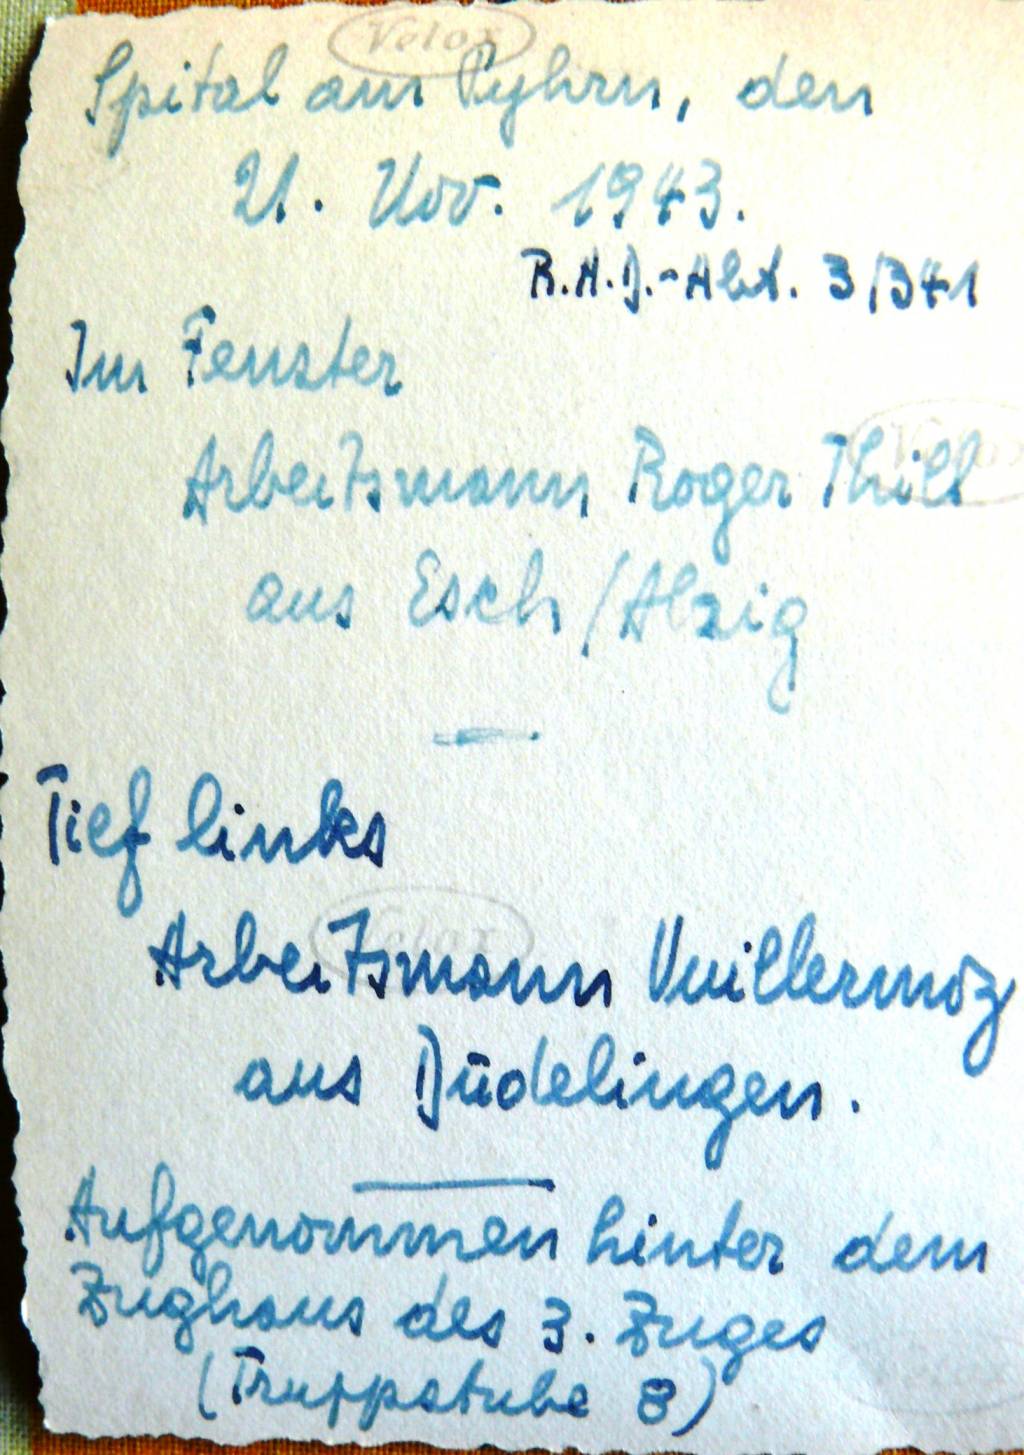 Velox
Spital am Pyhrn, den
21. Nov. 1943.
R.A.D.-Abt. 3/341
Im Fenster
Arbeitsmann Roger Thill
aus Esch/Alzig
Tief links
Velox
Arbeitsmann Vuillermoz
aus Düdelingen.
Aufgenommen hinter dem
Zughaus des 3. Zuges
(Truppstube 8)